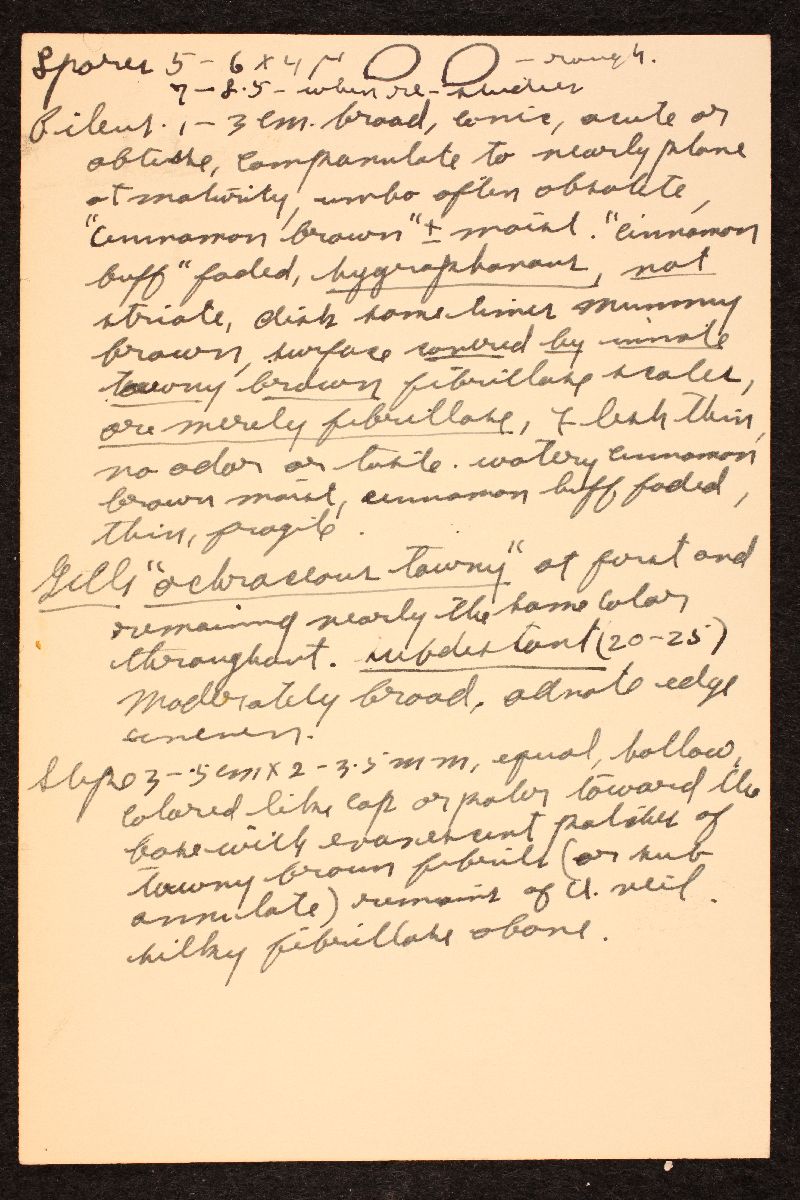 Spores 5-6 x 4 µ - rough.
7-8.5- when re-studied
Pileus. 1-3 cm. broad, conic, acute or
obtuse, campanulate to nearly plane
at maturity, umbo often obsolete,
"cinnamon brown" ± moist. "cinnamon
buff" faded, hygrophanous, not
striate, disk sometimes mummy
brown, surface covered by innate
tawny brown fibrillose scales,
or merely fibrillose, flesh thin,
no odor or taste. watery cinnamon
brown moist, cinnamon buff faded,
thin, fragile.
Gills "ochraceous tawny" at first and
remaining nearly the same color
throughout. subdistant (20-25)
Moderately broad, adnate edge
uneven.
Stipe 3-5 cm x 2-3.5 mm, equal, hollow,
colored like cap or paler toward the
base with evanescent patches of
tawny brown fibrils (or sub
annulate) remains of a veil.
silky fibrillose above.